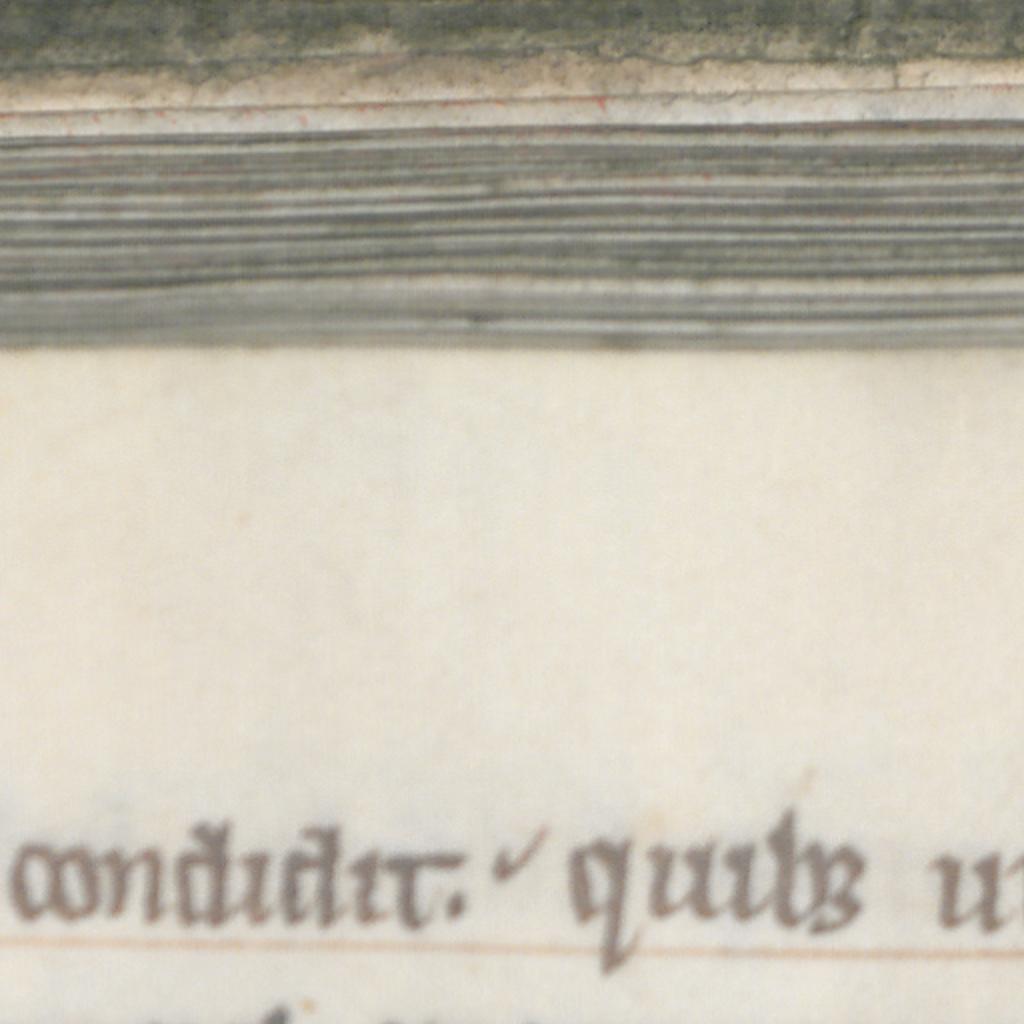 condidit. quibꝫ